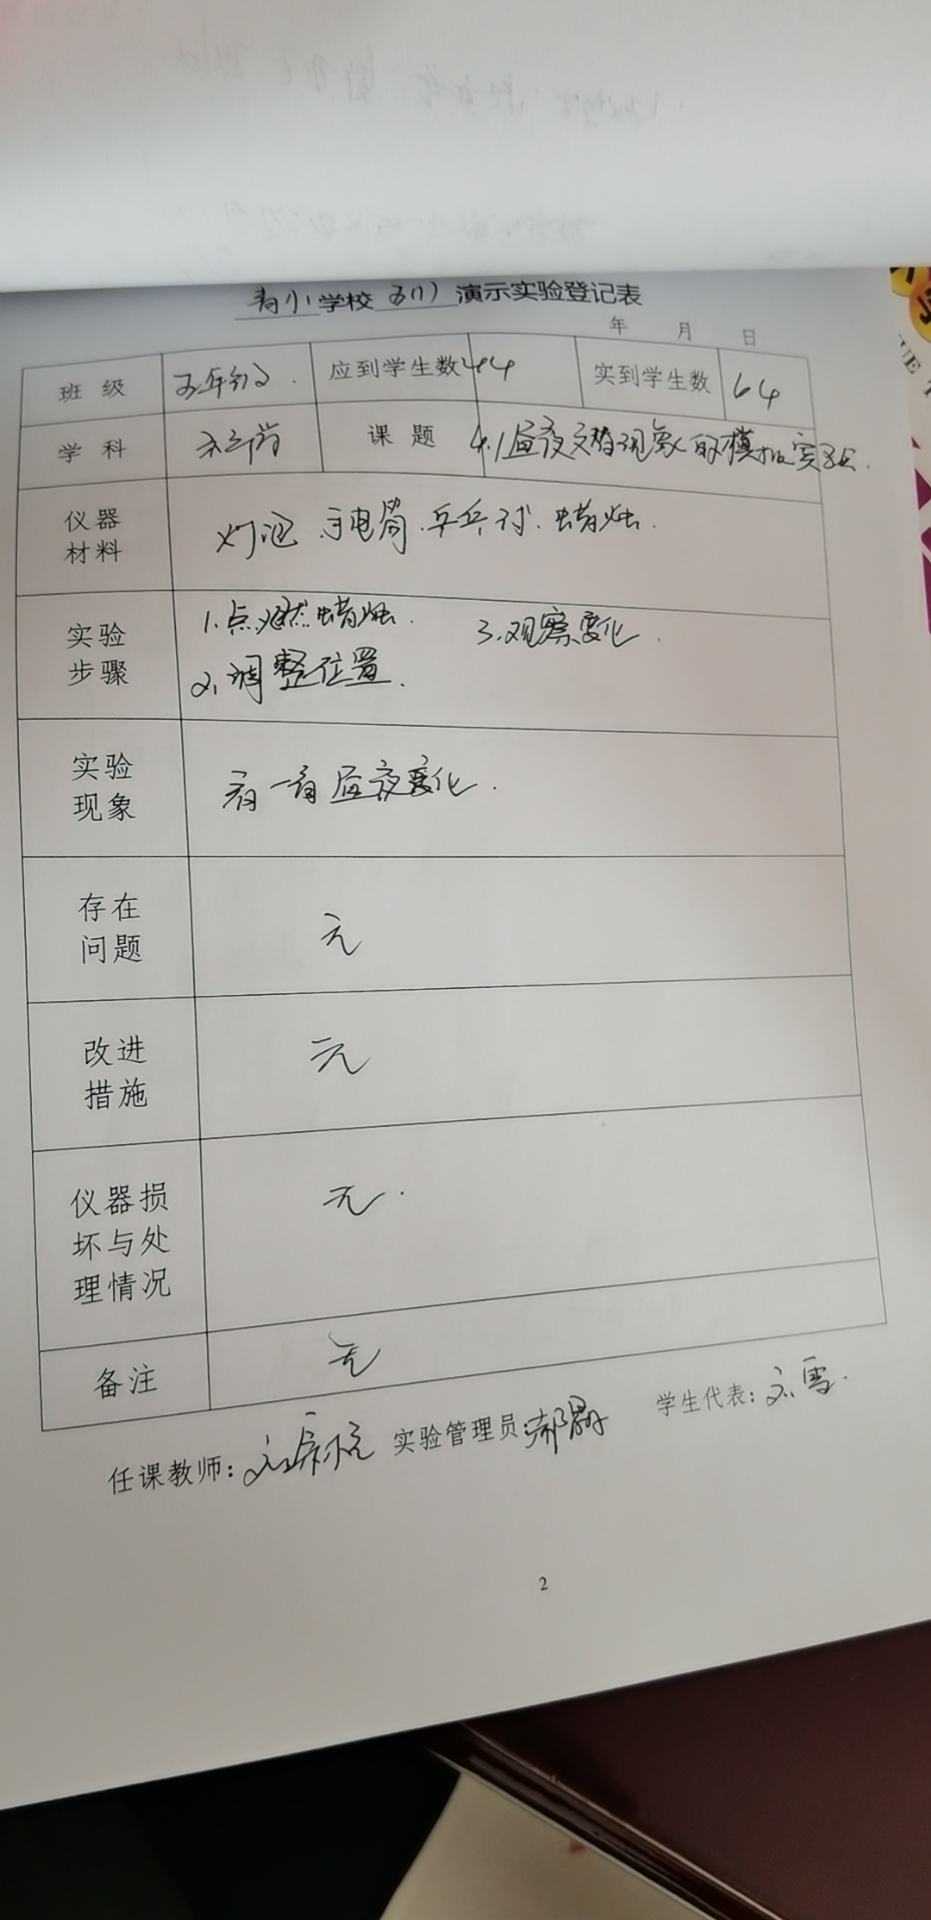 青小学校 五(1) 演示实验登记表
年 月 日
班 级 应到学生数 44 实到学生数 64
学 科 课 题 4.1昼夜交替现象的模拟实验.
仪器材料 灯泡.手电筒.乒乓球.蜡烛.
实验步骤
1.点燃蜡烛.
3.观察变化.
2.调整位置.
实验现象
看一看昼夜变化.
存在问题
无
改进措施
无
仪器损坏与处理情况
无.
备注
无
任课教师: 实验管理员 学生代表: 刘雪.
2